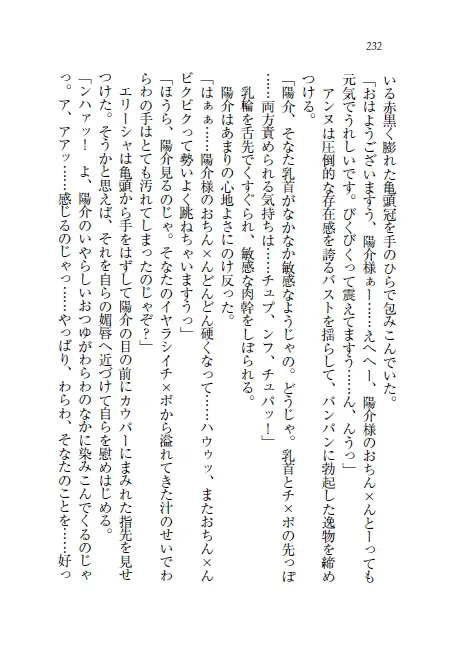 232
いる赤黒く膨れた亀頭冠を手のひらで包みこんでいた。
「おはようございますう、陽介様ぁー……えへへー、陽介様のおちん×んとーっても
元気でうれしいです。びくびくって震えてますう……ん、んうっ」
アンヌは圧倒的な存在感を誇るバストを揺らして、パンパンに勃起した逸物を締め
つける。
「陽介、そなた乳首がなかなか敏感なようじゃの。どうじゃ。乳首とチ×ボの先っぽ
……両方責められる気持ちは……チュプ、ンフ、チュパッ！」
乳輪を舌先でくすぐられ、敏感な肉幹をしぼられる。
陽介はあまりの心地よさにのけ反った。
「はぁぁ……陽介様のおちん×んどんどん硬くなって……ハウゥッ、またおちん×ん
ビクビクって勢いよく跳ねちゃいますうっ」
「ほうら、陽介見るのじゃ。そなたのイヤラシイチ×ボから溢れてきた汁のせいでわ
らわの手はとても汚れてしまったのじゃぞ？」
エリーシャは亀頭から手をはずして陽介の目の前にカウパーにまみれた指先を見せ
つけた。そうかと思えば、それを自らの媚唇へ近づけて自らを慰めはじめる。
「ンハァッ！　よ、陽介のいやらしいおつゆがわらわのなかに染みこんでくるのじゃ
っ。ア、アアッ……感じるのじゃっ……やっぱり、わらわ、そなたのことを……好っ